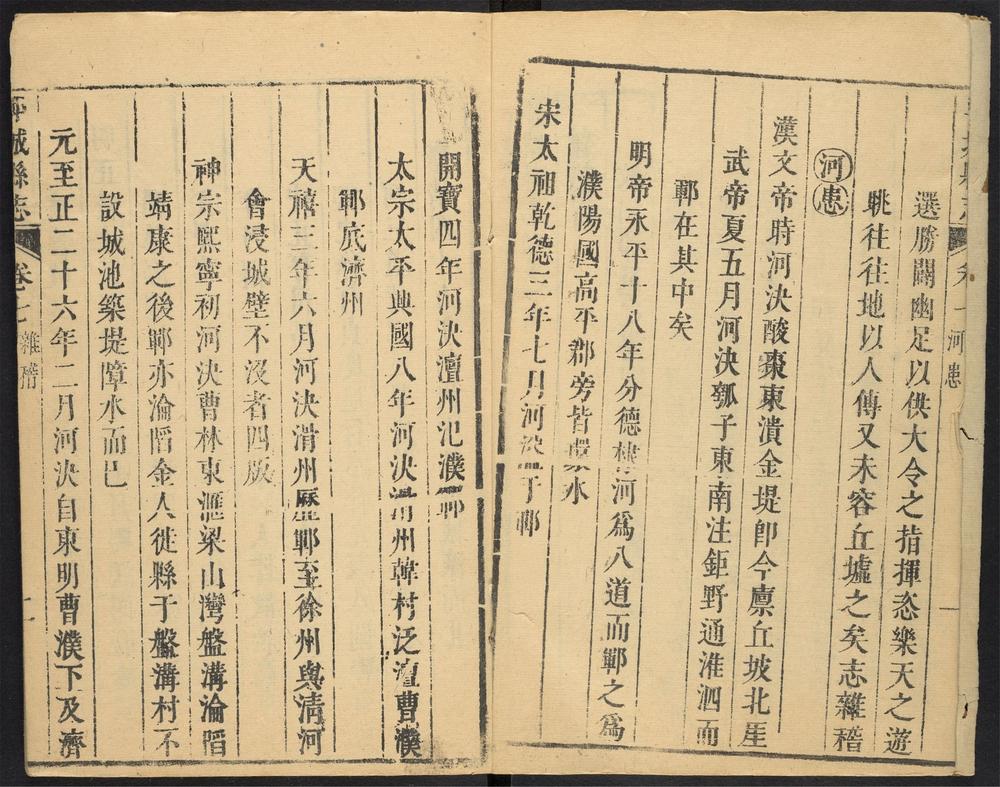 選勝闢幽足以供大令之指揮恣樂天之遊
眺往往地以人傳又未容丘墟之矣志雜稽
河患
漢文帝時河決酸棗東潰金堤卽今廪丘坡北厓
武帝夏五月河決瓠子東南注鉅野通淮泗而
鄆在其中矣
明帝永平十八年分德棣河爲八道而鄆之爲
濮陽國高平郡旁皆水
宋太祖乾德三年七月河決于鄆
開寶四年河決澶州氾濮鄆
太宗太平興國八年河決滑州韓村泛澶曹濮
鄆底濟州
天禧三年六月河決滑州歷鄆至徐州與清河
會浸城壁不沒者四版
神宗熙寧初河決曹林東滙梁山灣盤溝淪陷
靖康之後鄆亦淪陷金人徙縣于盤溝村不
設城池築堤障水而已
元至正二十六年二月河決自東明曹濮下及濟
城縣志 卷七 雜稽
河患